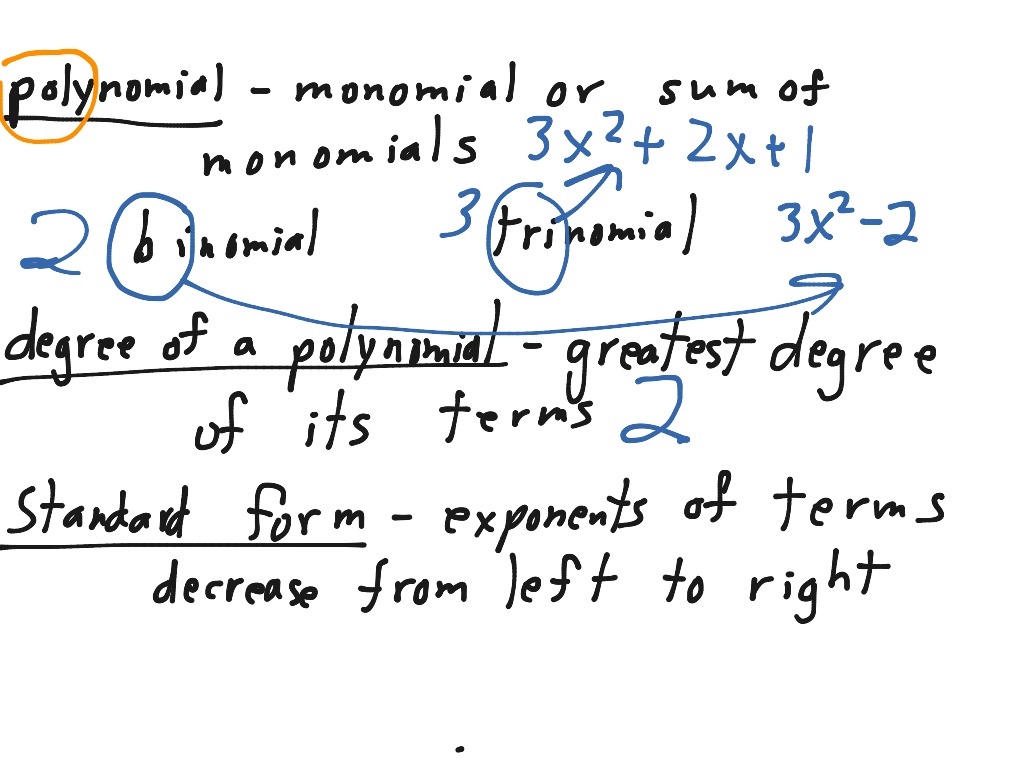 polynomial - monomial or sum of
monomials 3x² + 2x + 1
2 binomial 3 trinomial 3x² - 2
degree of a polynomial - greatest degree
of its terms 2
Standard form - exponents of terms
decrease from left to right